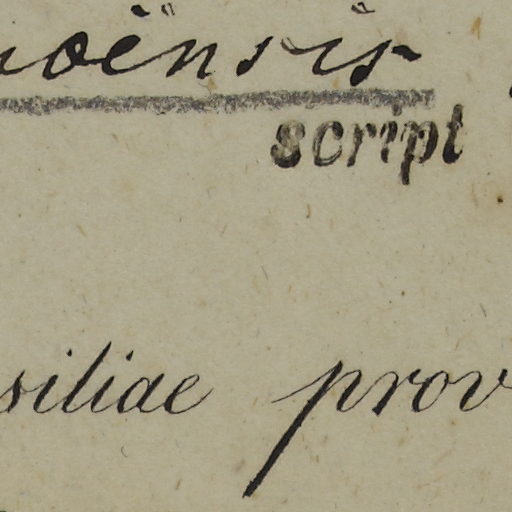 oënsis
script
siliae prov